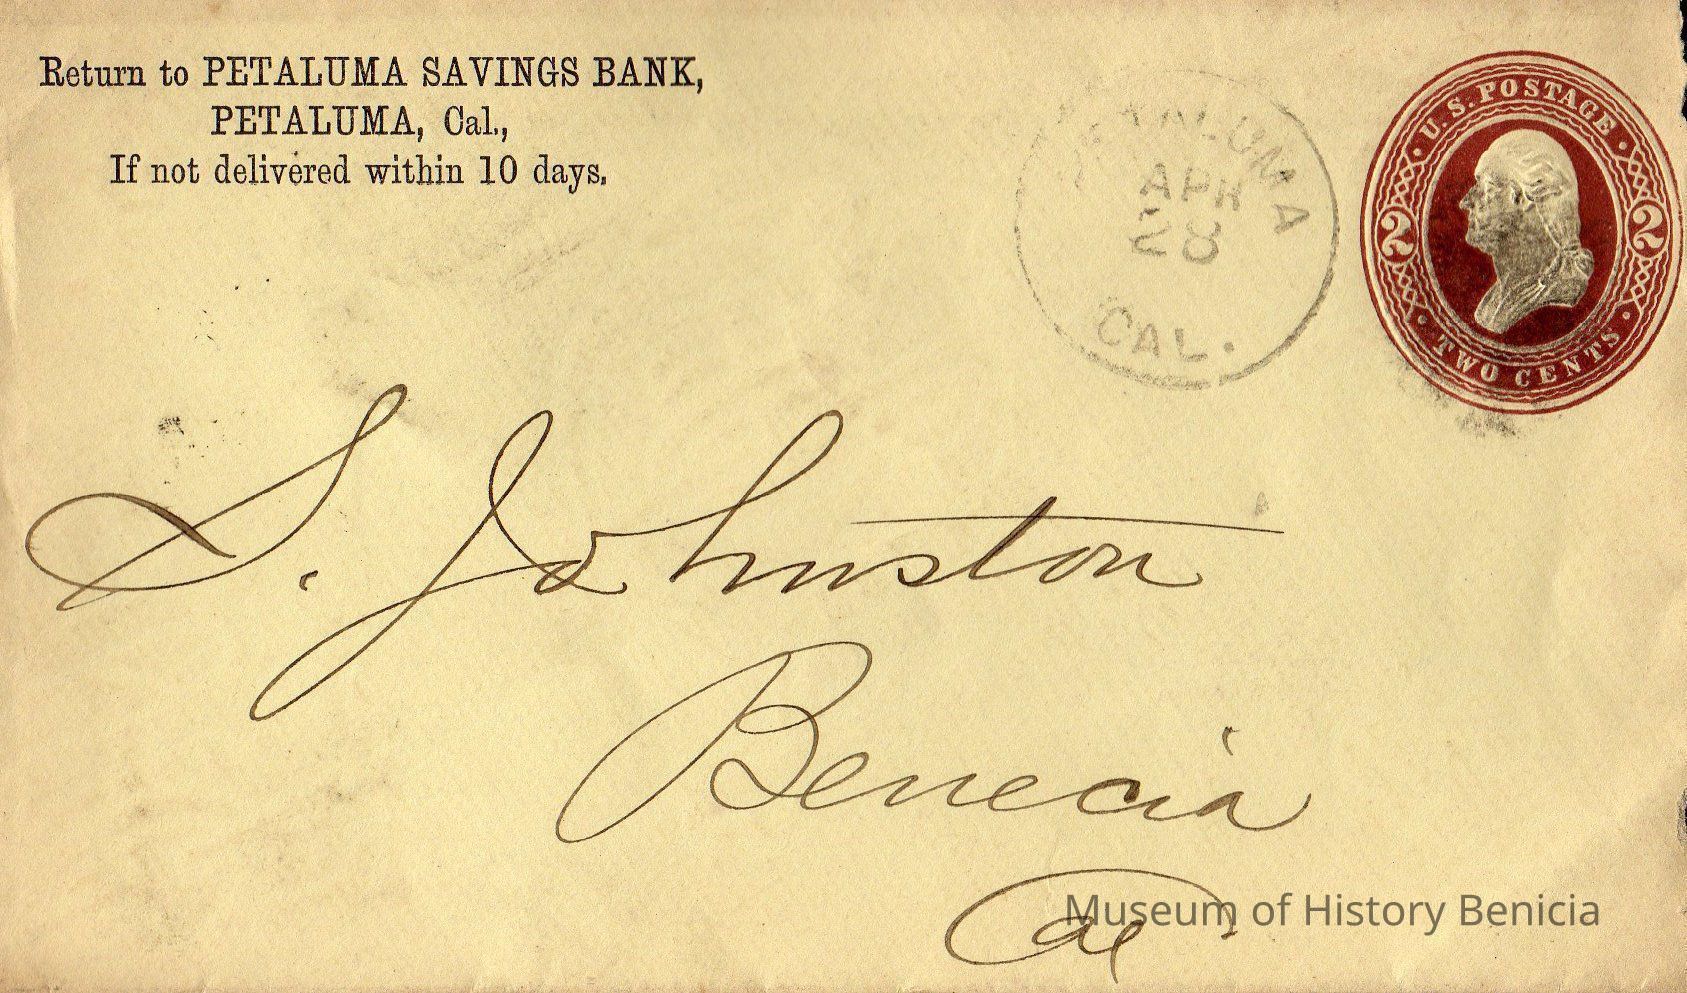 Return to PETALUMA SAVINGS BANK,
PETALUMA, Cal.,
If not delivered within 10 days.
PETALUMA
APR
28
CAL.
U.S. POSTAGE
2 2
TWO CENTS
S. Johnston
Benecia
Cal
Museum of History Benicia